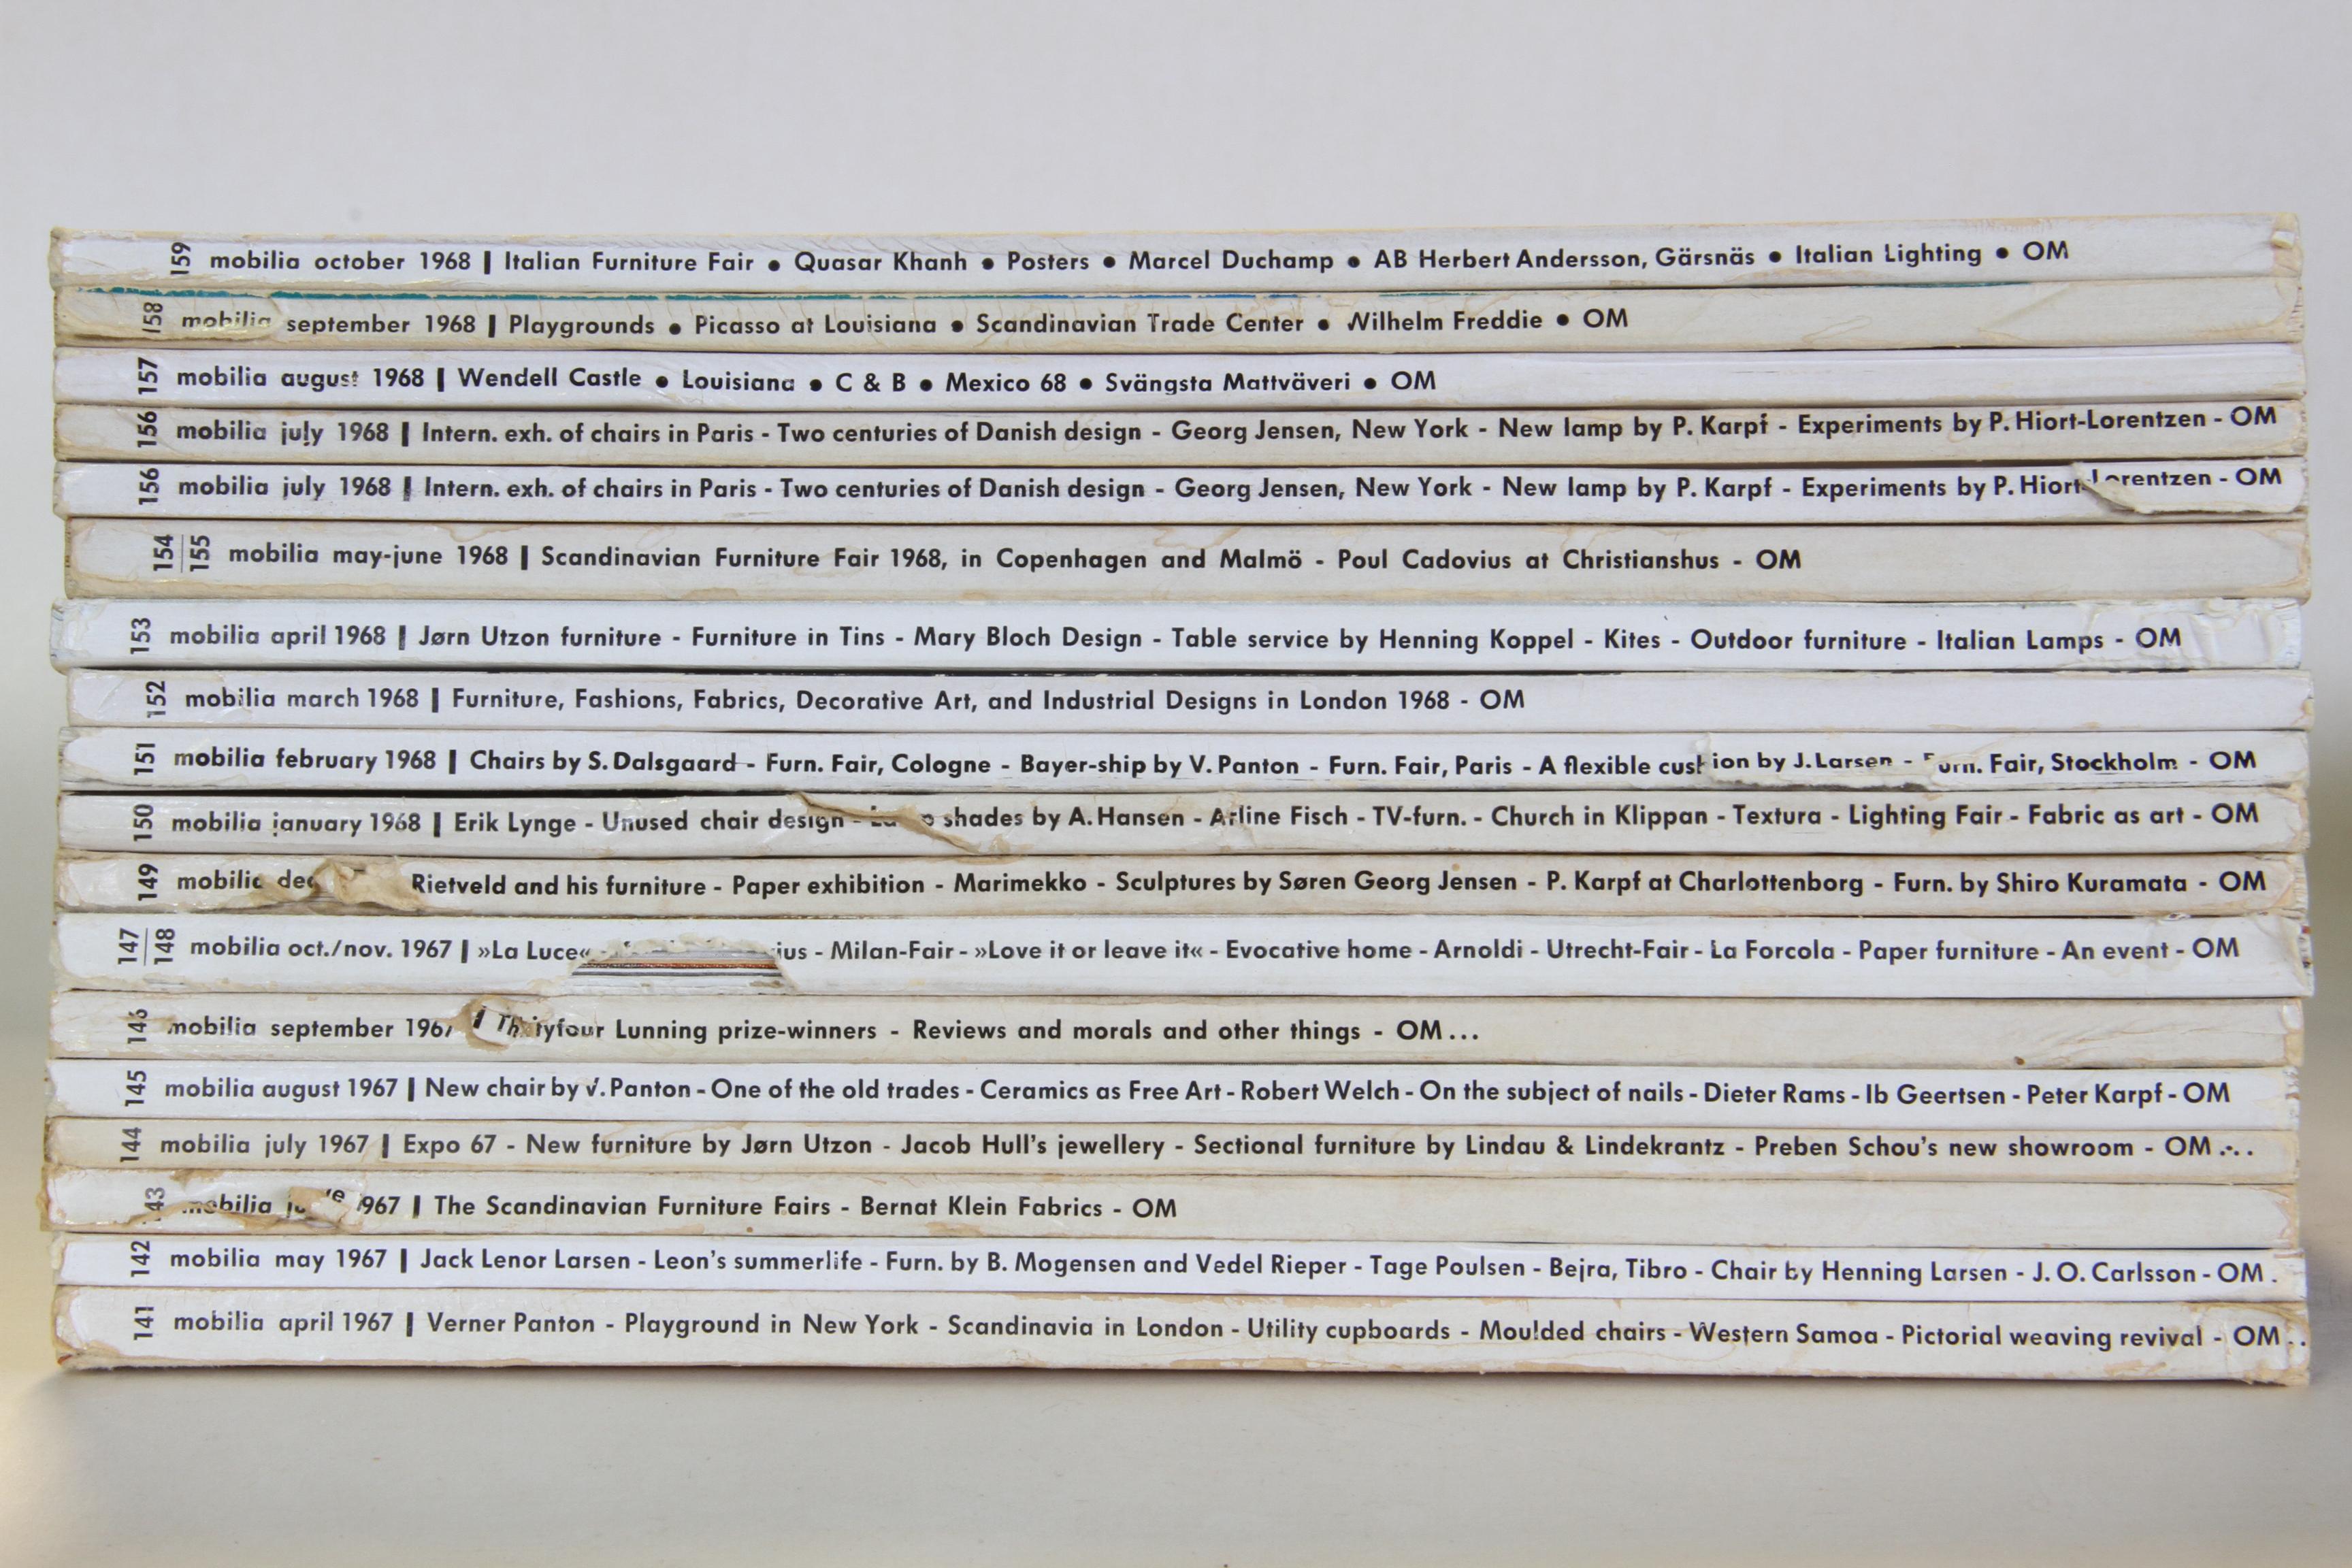 159 mobilia october 1968 | Italian Furniture Fair • Quasar Khanh • Posters • Marcel Duchamp • AB Herbert Andersson, Gärsnäs • Italian Lighting • OM
158 mobilia september 1968 | Playgrounds • Picasso at Louisiana • Scandinavian Trade Center • Wilhelm Freddie • OM
157 mobilia august 1968 | Wendell Castle • Louisiana • C & B • Mexico 68 • Svängsta Mattväveri • OM
156 mobilia july 1968 | Intern. exh. of chairs in Paris - Two centuries of Danish design - Georg Jensen, New York - New lamp by P. Karpf - Experiments by P. Hiort-Lorentzen - OM
156 mobilia july 1968 | Intern. exh. of chairs in Paris - Two centuries of Danish design - Georg Jensen, New York - New lamp by P. Karpf - Experiments by P. Hiort-Lorentzen - OM
154 155 mobilia may-june 1968 | Scandinavian Furniture Fair 1968, in Copenhagen and Malmö - Poul Cadovius at Christianshus - OM
153 mobilia april 1968 | Jørn Utzon furniture - Furniture in Tins - Mary Bloch Design - Table service by Henning Koppel - Kites - Outdoor furniture - Italian Lamps - OM
152 mobilia march 1968 | Furniture, Fashions, Fabrics, Decorative Art, and Industrial Designs in London 1968 - OM
151 mobilia february 1968 | Chairs by S. Dalsgaard - Furn. Fair, Cologne - Bayer-ship by V. Panton - Furn. Fair, Paris - A flexible cushion by J. Larsen - Furn. Fair, Stockholm - OM
150 mobilia january 1968 | Erik Lynge - Unused chair design - shades by A. Hansen - Arline Fisch - TV-furn. - Church in Klippan - Textura - Lighting Fair - Fabric as art - OM
149 mobilia Rietveld and his furniture - Paper exhibition - Marimekko - Sculptures by Søren Georg Jensen - P. Karpf at Charlottenborg - Furn. by Shiro Kuramata - OM
147 148 mobilia oct./nov. 1967 | »La Luce« - Milan-Fair - »Love it or leave it« - Evocative home - Arnoldi - Utrecht-Fair - La Forcola - Paper furniture - An event - OM
146 mobilia september 1967 | Thirtyfour Lunning prize-winners - Reviews and morals and other things - OM...
145 mobilia august 1967 | New chair by V. Panton - One of the old trades - Ceramics as Free Art - Robert Welch - On the subject of nails - Dieter Rams - Ib Geertsen - Peter Karpf - OM
144 mobilia july 1967 | Expo 67 - New furniture by Jørn Utzon - Jacob Hull's jewellery - Sectional furniture by Lindau & Lindekrantz - Preben Schou's new showroom - OM ...
143 mobilia june 1967 | The Scandinavian Furniture Fairs - Bernat Klein Fabrics - OM
142 mobilia may 1967 | Jack Lenor Larsen - Leon's summerlife - Furn. by B. Mogensen and Vedel Rieper - Tage Poulsen - Bejra, Tibro - Chair by Henning Larsen - J. O. Carlsson - OM .
141 mobilia april 1967 | Verner Panton - Playground in New York - Scandinavia in London - Utility cupboards - Moulded chairs - Western Samoa - Pictorial weaving revival - OM ..